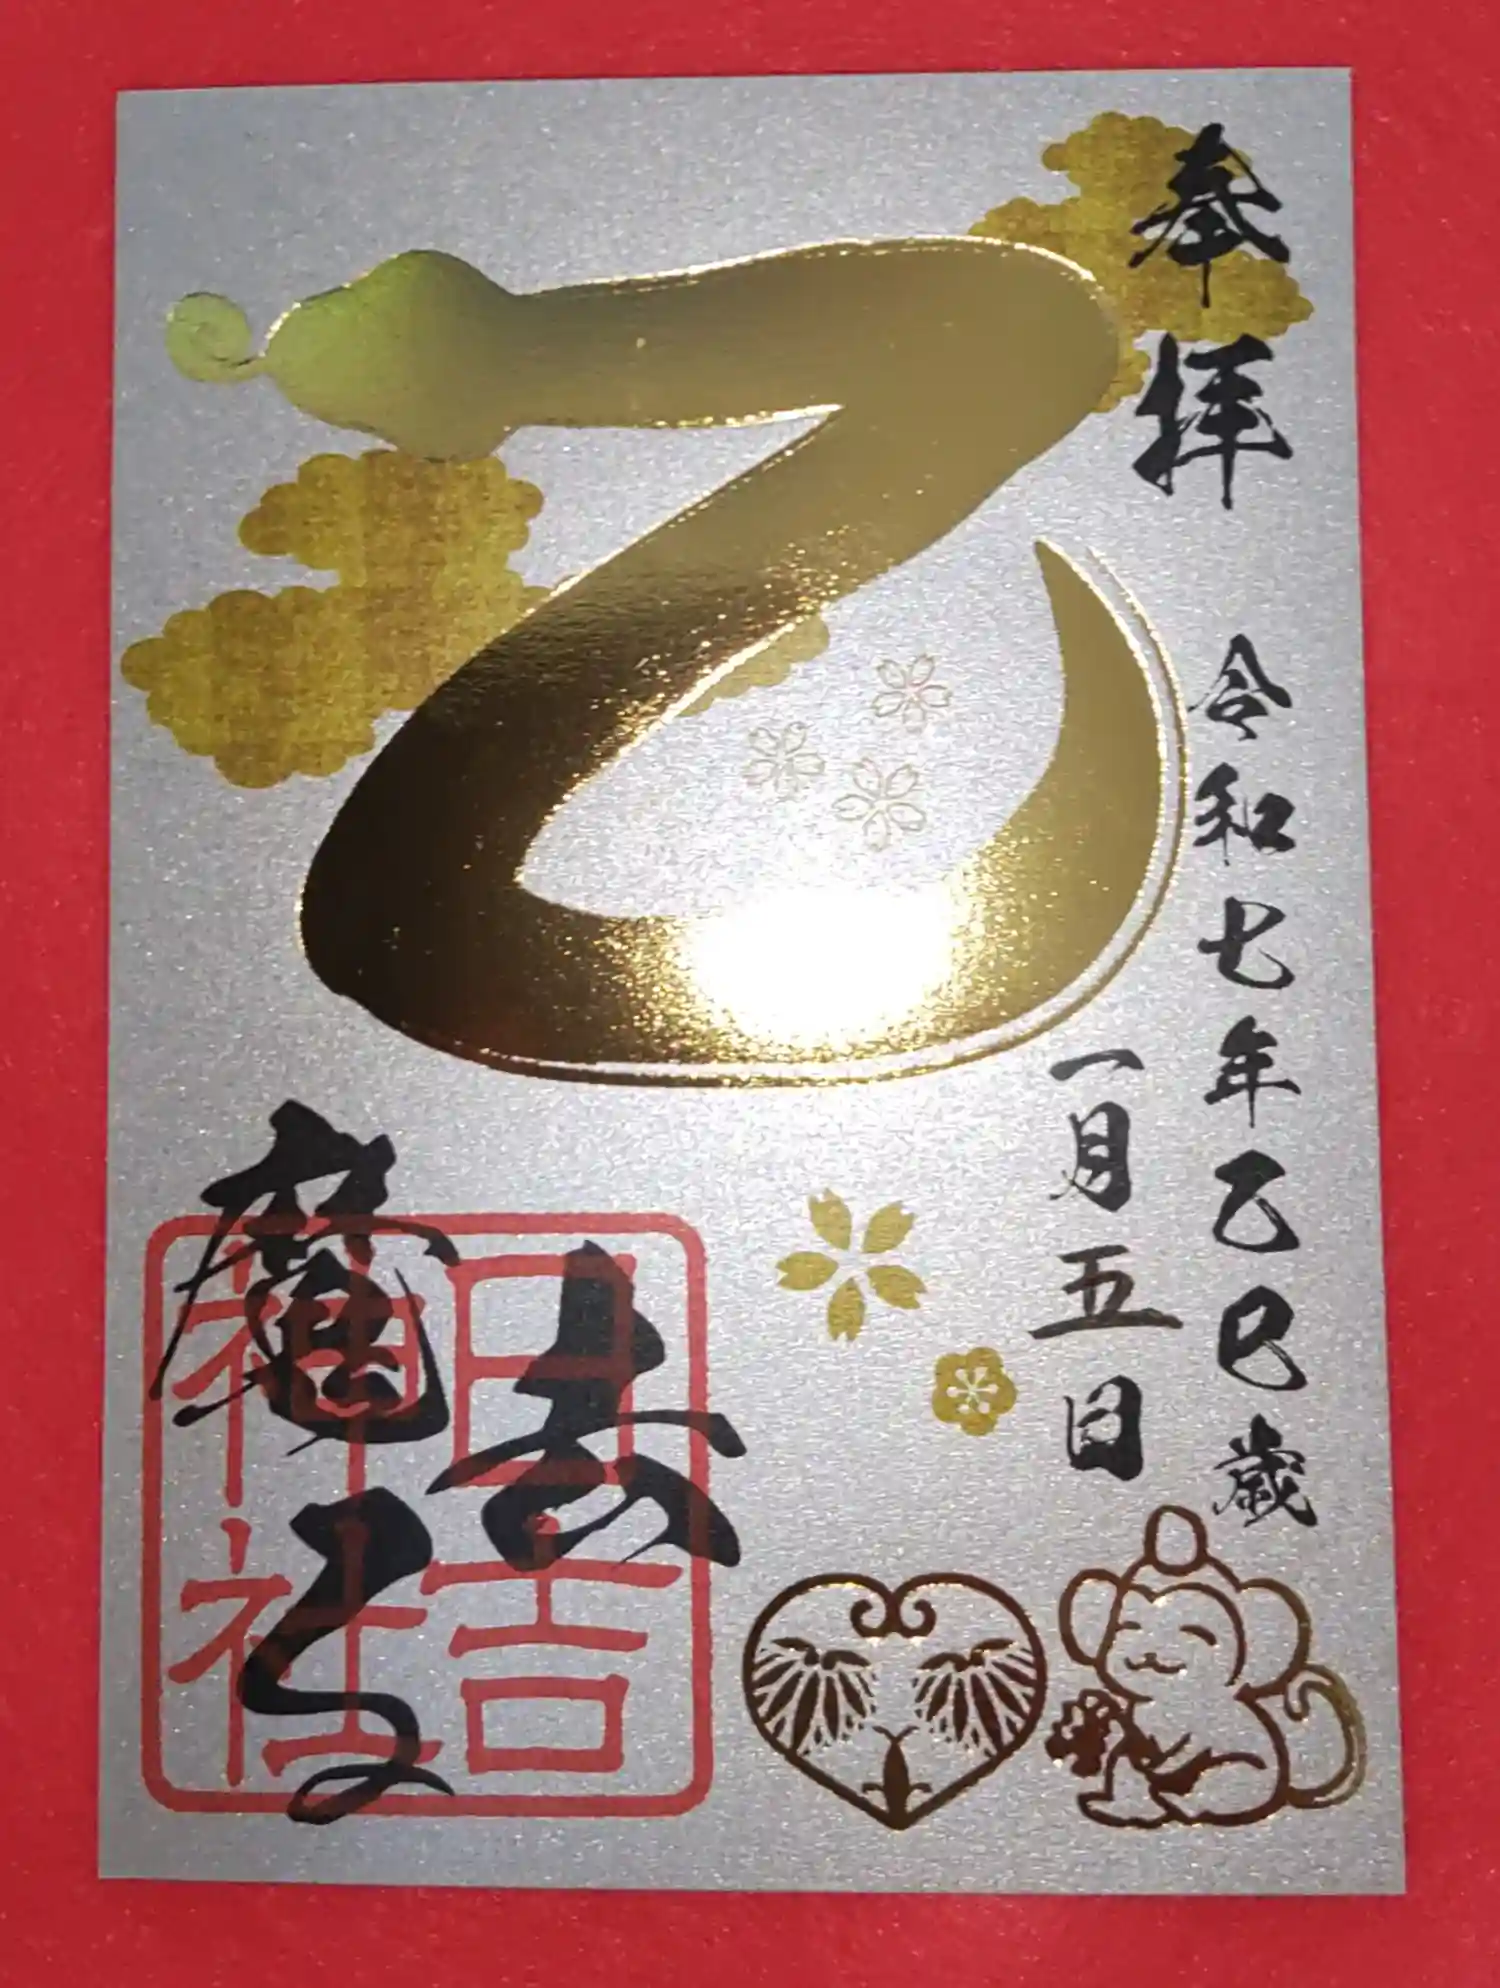 奉拝
令和七年乙巳歳
一月五日
乙
魔去る
日吉
神社